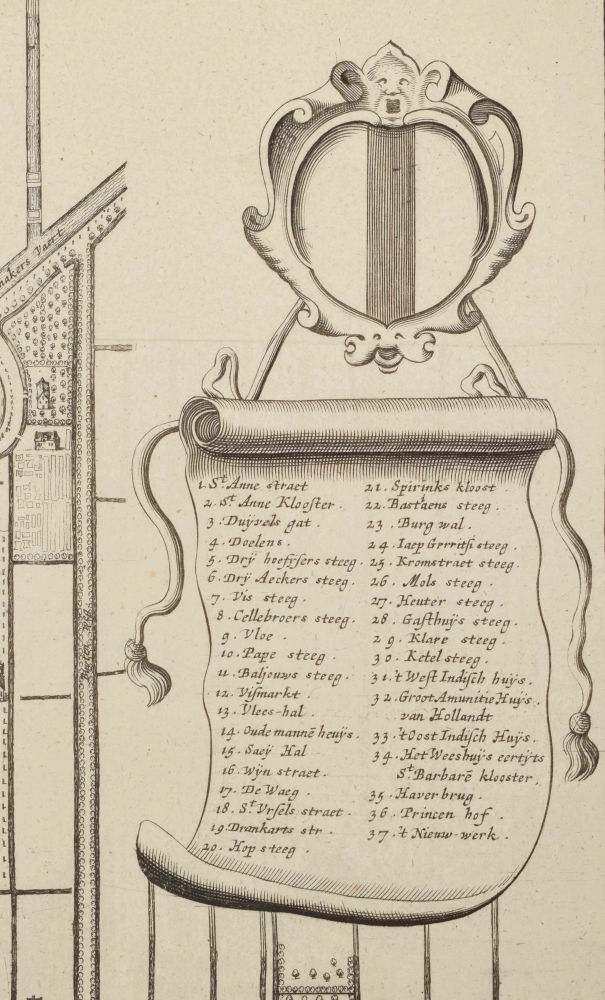 makers Vaert
1. St Anne straet
2. St Anne Klooster.
3. Duyvels gat.
4. Doelens.
5. Drÿ heefsers steeg.
6. Drÿ Aeckers steeg.
7. Vis steeg.
8. Cellebroers steeg.
9. Vloe.
10. Pape steeg.
11. Baljouws steeg.
12. Vismarkt.
13. Vlees-hal.
14. Oude mannē heuÿs.
15. Saeÿ Hal
16. Wÿn straet.
17. De Waeg.
18. St Vrsels straet.
19. Drankarts str.
20. Hop steeg.
21. Spirinks kloost.
22. Bastiaens steeg.
23. Burg wal.
24. Iaep Grrritsi steeg.
25. Kromstraet steeg.
26. Mols steeg.
27. Heuter steeg.
28. Gasthuÿs steeg.
29. Klare steeg.
30. Ketel steeg.
31. 't West Indisch huÿs.
32. Groot Amunitie Huÿs.
van Hollandt
33. 't Oost Indisch Huÿs.
34. Het Weeshuÿs eertÿts
St Barbarē klooster.
35. Haver brug.
36. Princen hof.
37. 't Nieuw-werk.